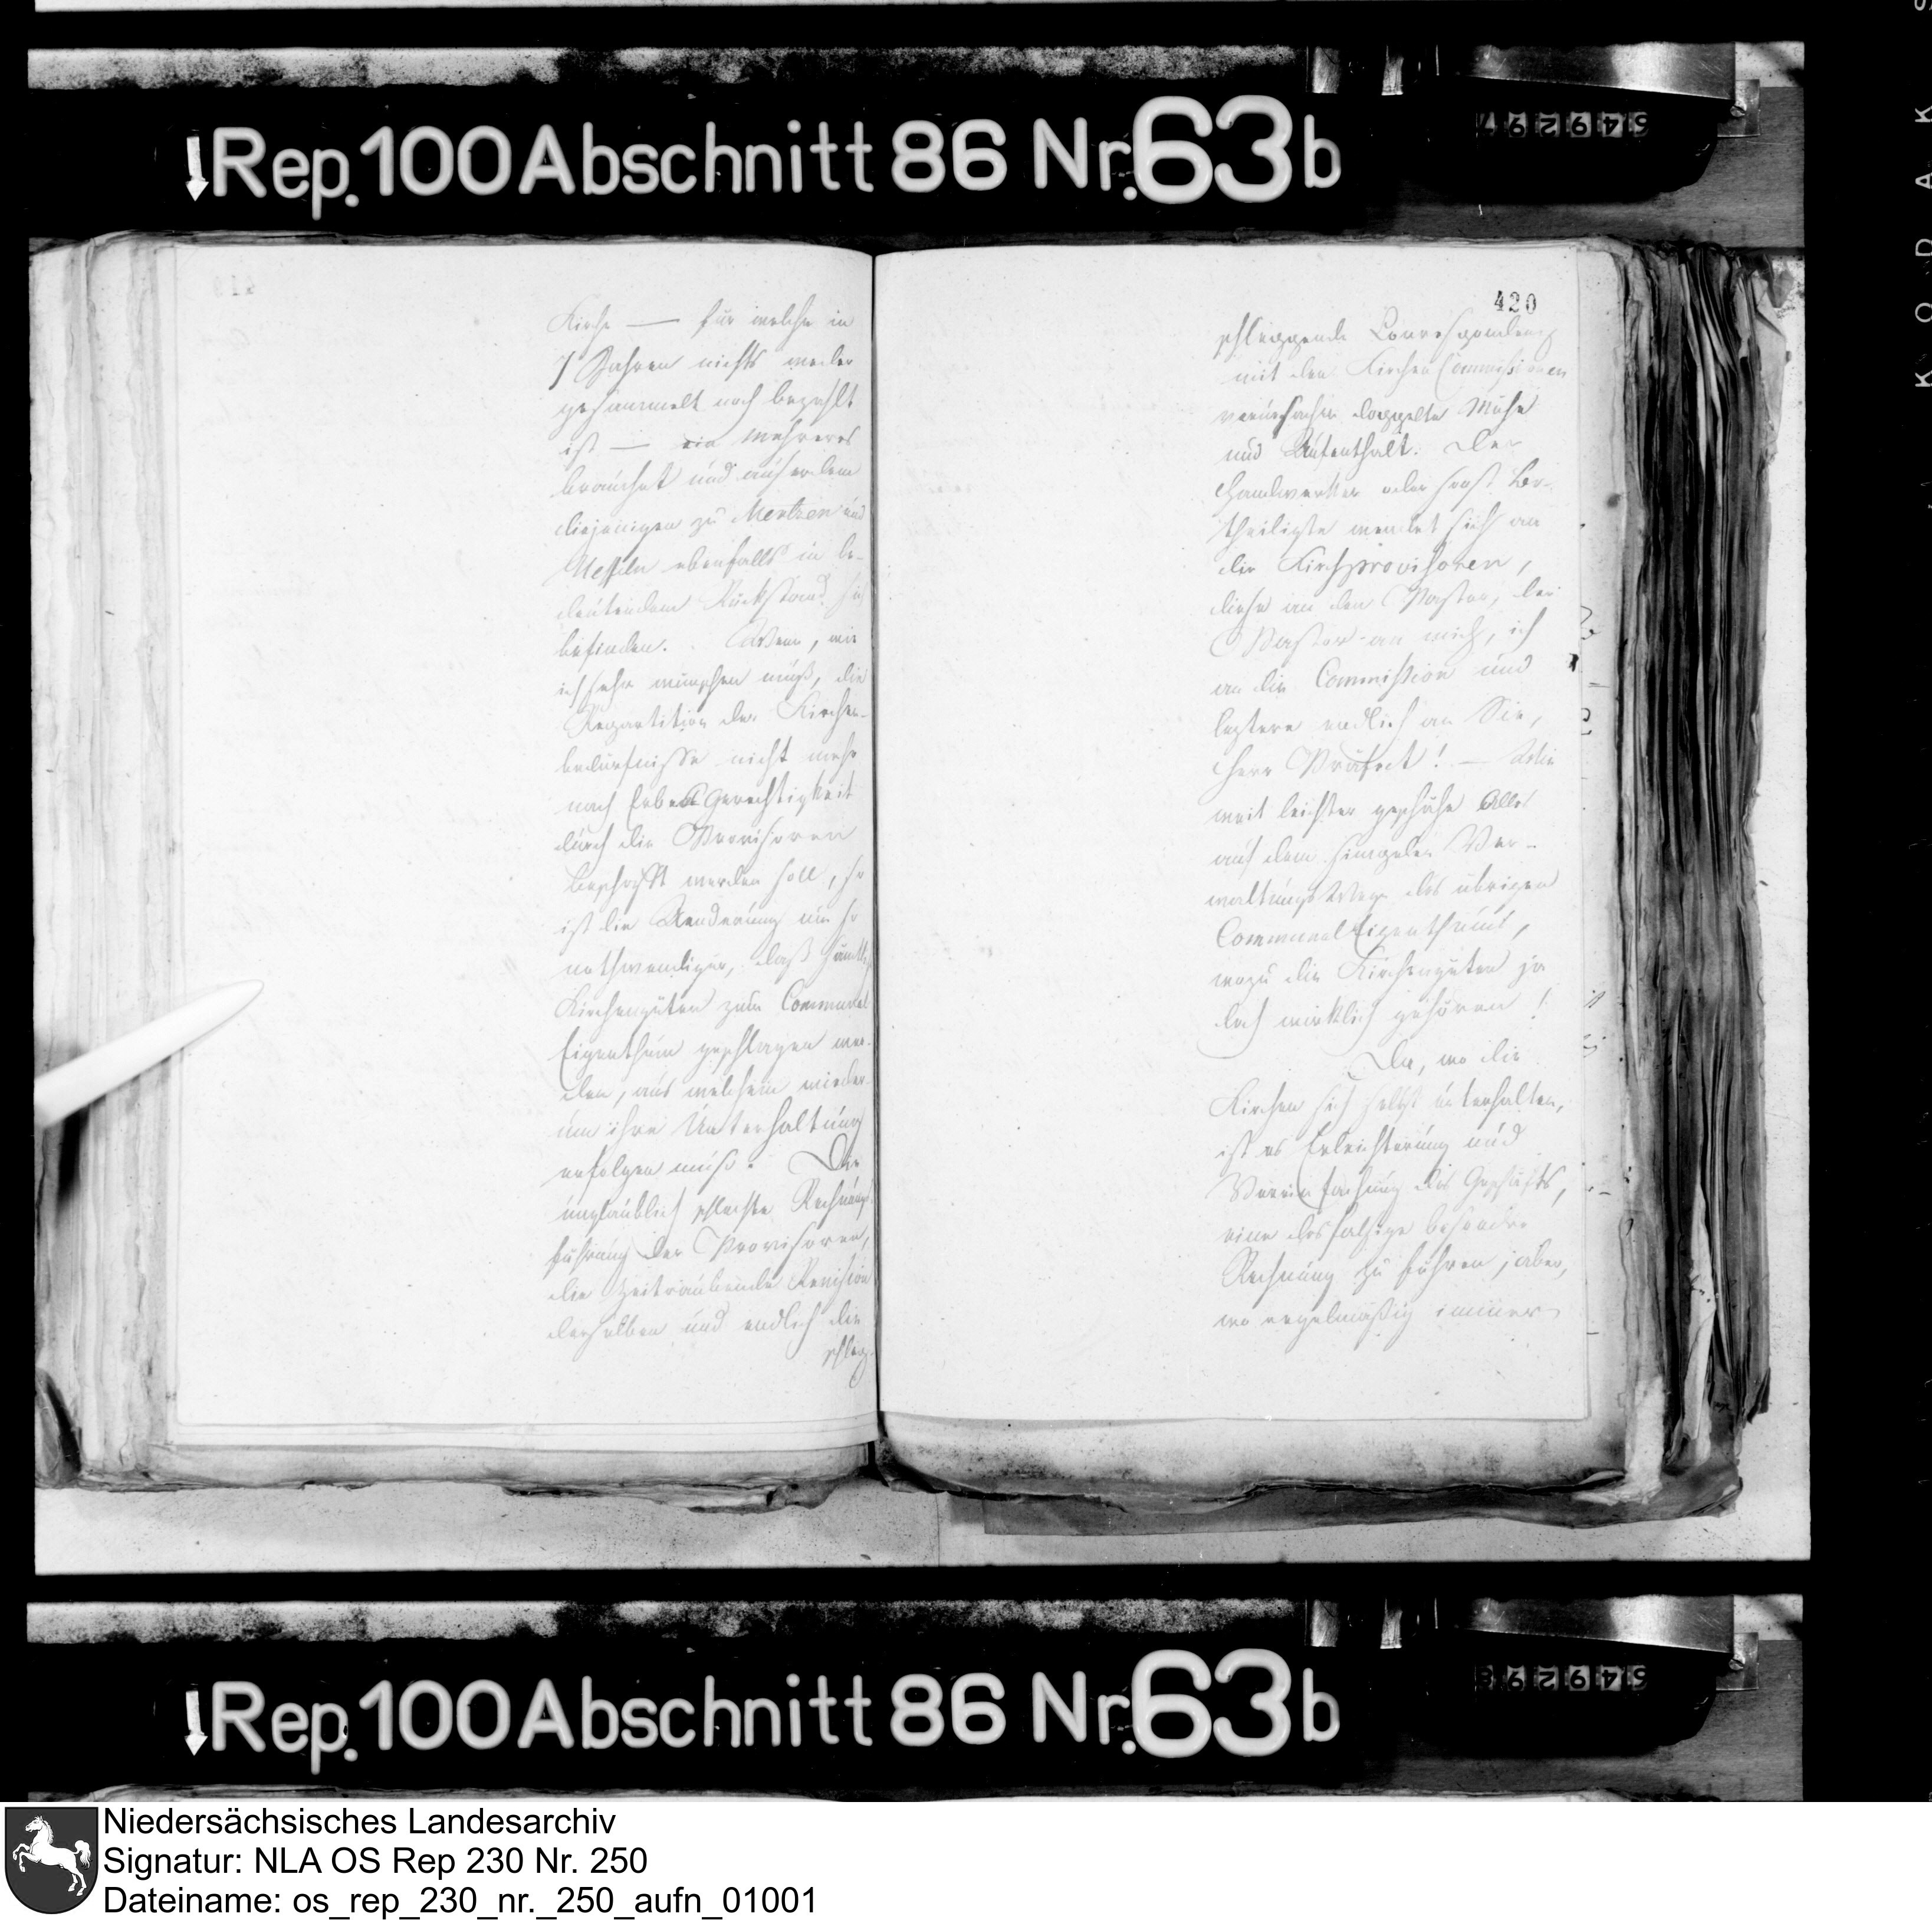 Rep. 100 Abschnitt 86 Nr. 63b
Kirche — für welche in
7 Jahren nichts weder
gesammelt noch bezahlt
ist — ein mehreres
brauchet und außerdem
diejenigen zu Mertzen und
Ueffeln ebenfalls in be-
deutendem Rückstand sich
befinden. Wenn, wie
ich sehr wünschen muß, die
Repartition der Kirchen-
bedürfnisse nicht mehr
nach Erbes Gerechtigkeit
durch die Provisoren
beschafft werden soll, so
ist die Aenderung um so
nothwendiger, daß sämtl.
Kirchengüter zum Communal
Eigenthum geschlagen wer-
den, aus welchem wieder-
um ihre Unterhaltung
erfolgen muß. Die
unglaublich schlechte Rechnungs-
führung der Provisoren,
die zeitraubende Revision
derselben und endlich die
schlep-
420
schleppende Correspondenz
mit den Kirchen Commissionen
verursachen doppelte Mühe
und Aufenthalt. Der
Handwerker oder sonst Be-
theiligte wendet sich an
die Kirchprovisoren,
diese an den Pastor, der
Pastor an mich, ich
an die Commission und
letztere endlich an Sie,
Herr Präfect! — Wie
weit leichter geschähe Alles
auf dem simpelen Ver-
waltungs Wege des übrigen
Communal Eigenthums,
wozu die Kirchengüter ja
doch wirklich gehören!
Da, wo die
Kirchen sich selbst unterhalten,
ist es Erleichterung und
Vereinfachung des Geschäfts,
eine desfalsige besondre
Rechnung zu führen; aber,
wo regelmäßig immer
Rep. 100 Abschnitt 86 Nr. 63b
KODAK
Niedersächsisches Landesarchiv
Signatur: NLA OS Rep 230 Nr. 250
Dateiname: os_rep_230_nr._250_aufn_01001